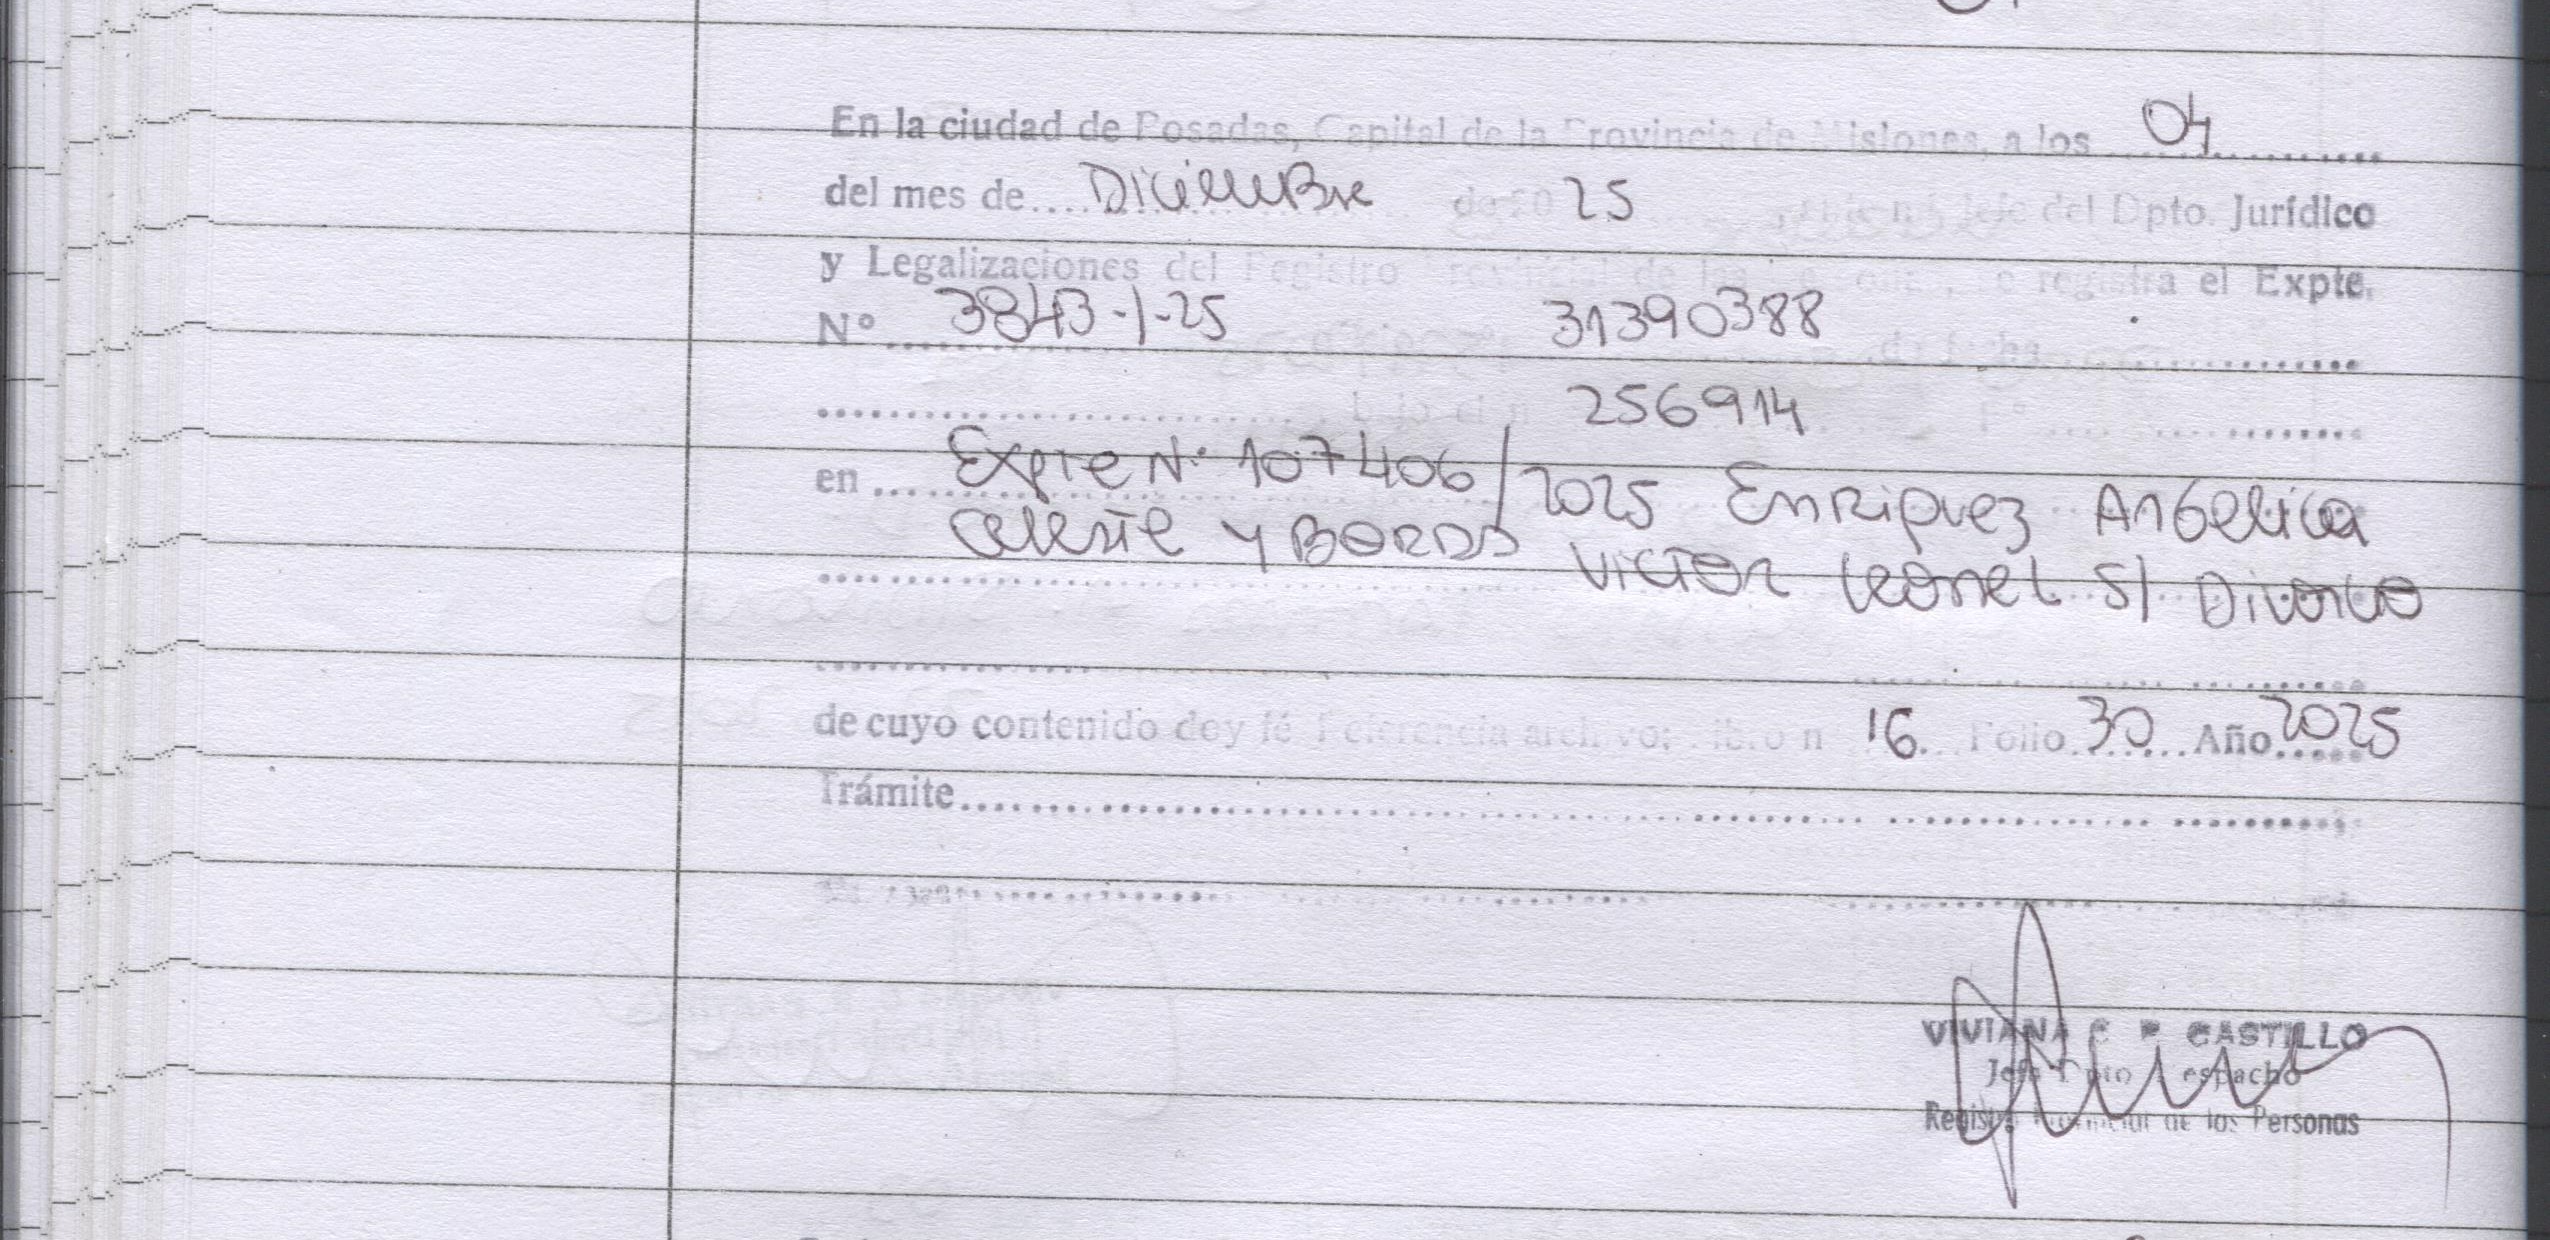 En la ciudad de Posadas, Capital de la Provincia de Misiones, a los 04
del mes de Diciembre de 20 25 Jefe del Dpto. Jurídico
y Legalizaciones del Registro Provincial de las registra el Expte.
Nº 3843-1-25 31390388 de fecha
bajo el 256914
en Expte Nº 107406/2025 Enriquez Angelica
Celeste y Borda Victor Leonel S/ Divorcio
de cuyo contenido doy fé Referencia archivo: Libro n 16 Folio 30 Año 2025
Trámite
VIVIANA C P CASTILLO
Jefa Dpto Despacho
Registro Provincial de las Personas